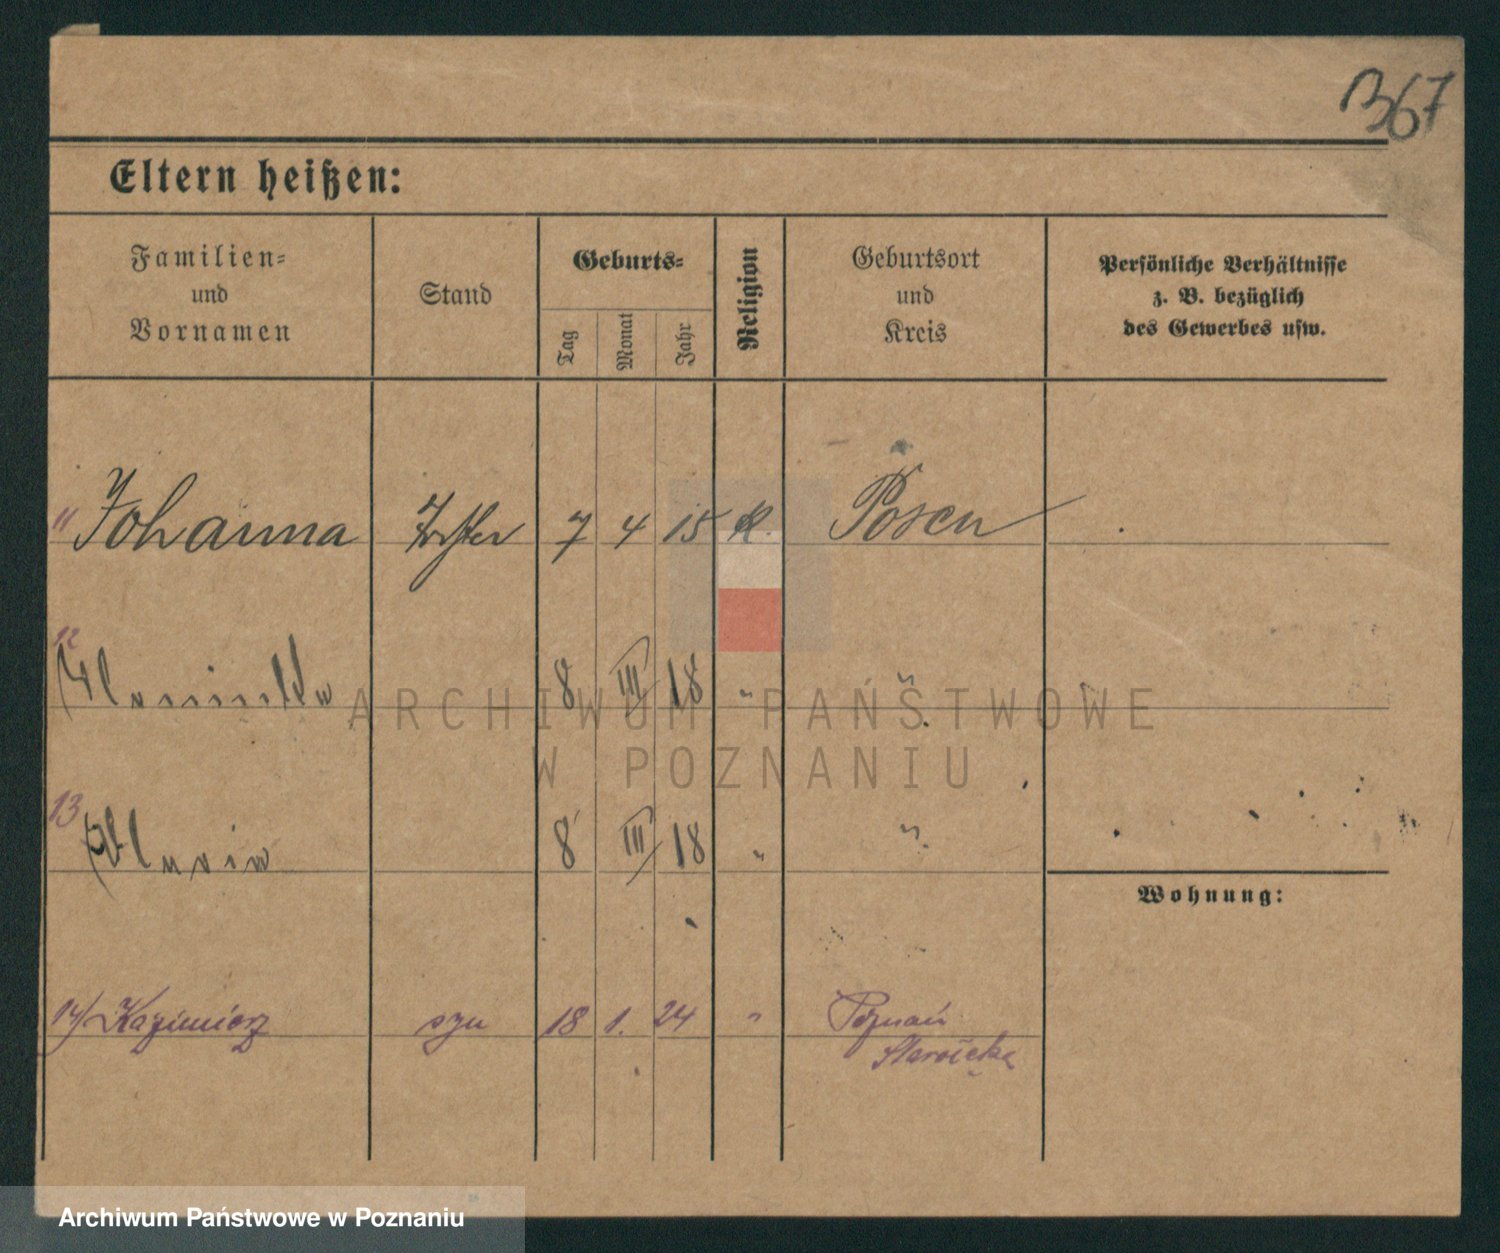 1367
Eltern heißen:
Familien= und Vornamen
Stand
Geburts=
Tag
Monat
Jahr
Religion
Geburtsort und Kreis
Persönliche Verhältnisse z. B. bezüglich des Gewerbes usw.
11 Johanna 7 4 15 k. Posen
12 8 III 18 " "
13 Maria 8 III 18 " "
Wohnung:
14/ Kazimierz syn 18 1. 24 " Poznań
Starołęka
ARCHIWUM PAŃSTWOWE
W POZNANIU
Archiwum Państwowe w Poznaniu